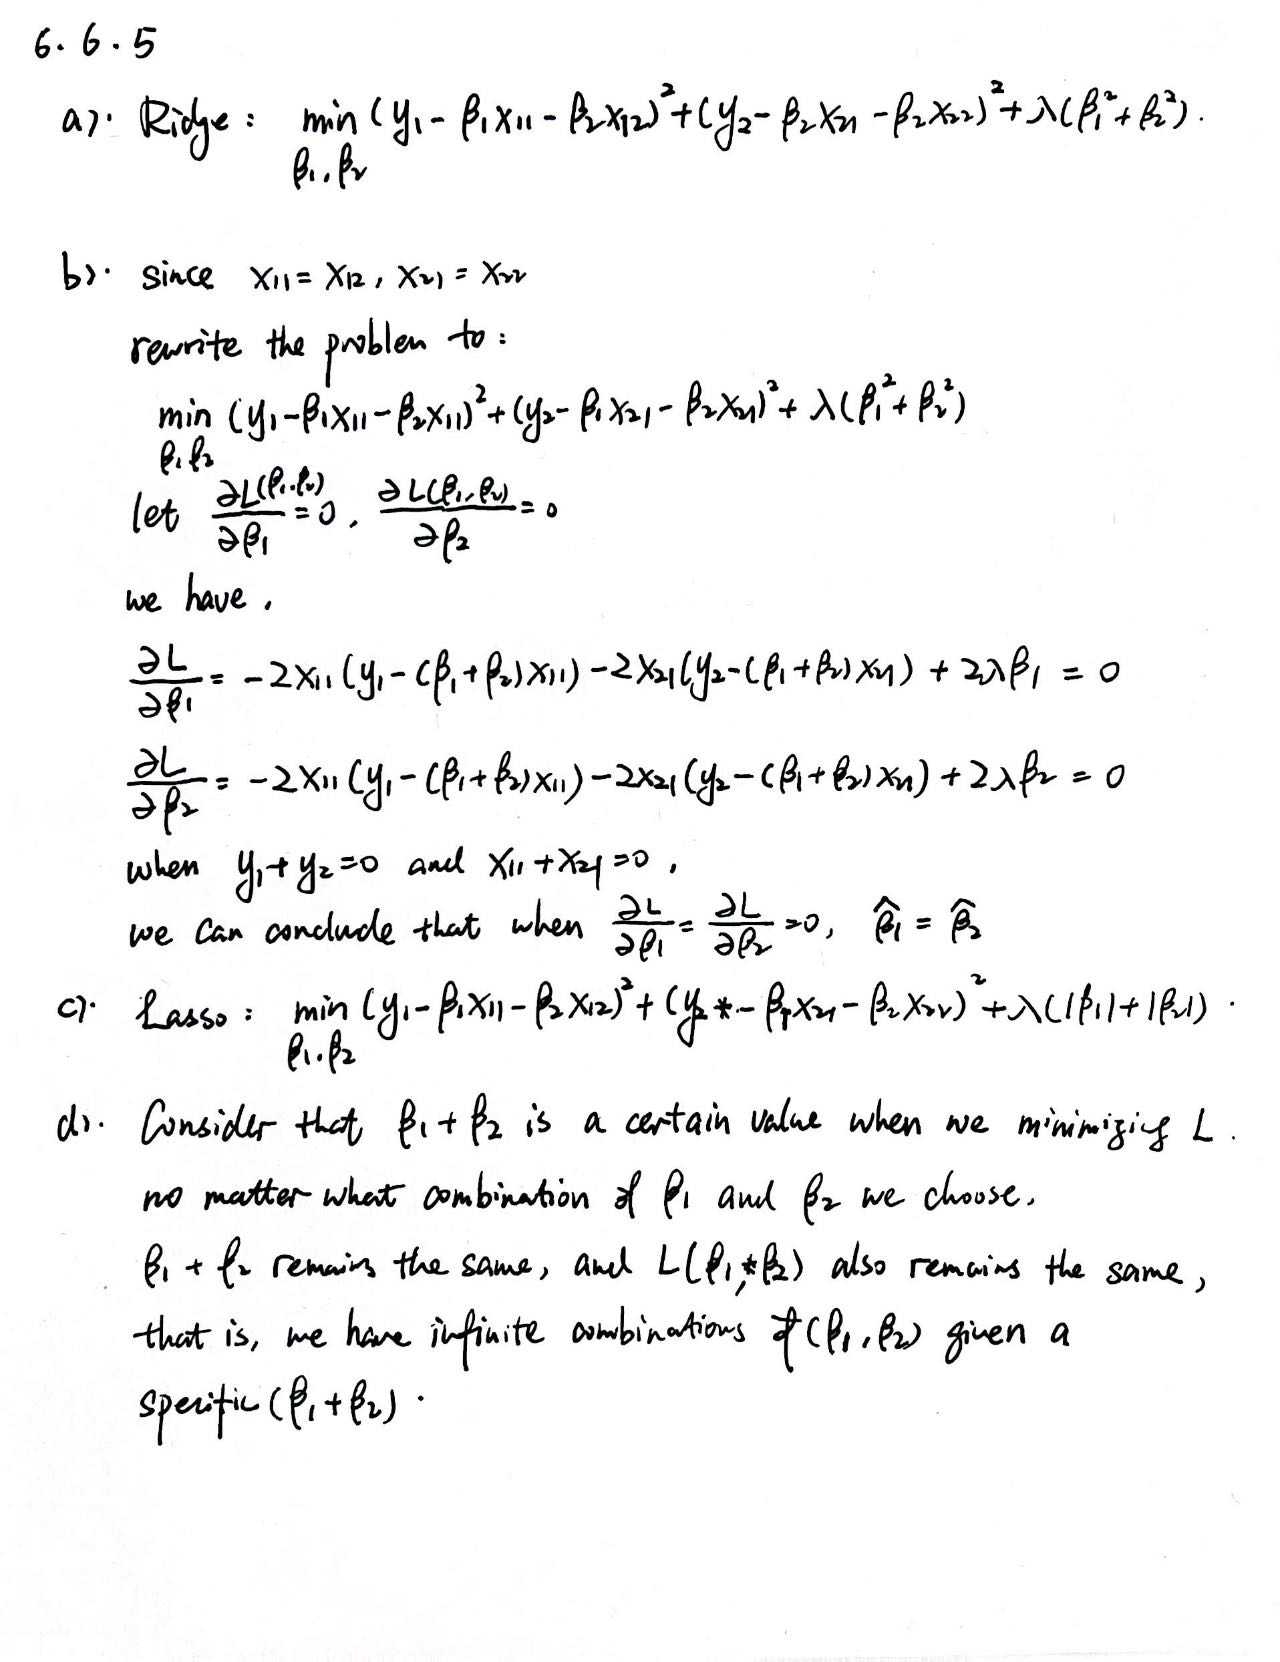 6.6.5
a). Ridge: min (y₁ - β₁x₁₁ - β₂x₁₂)² + (y₂ - β₂x₂₁ - β₂x₂₂)² + λ(β₁² + β₂²).
β₁.β₂
b). since x₁₁ = x₁₂, x₂₁ = x₂₂
rewrite the problem to:
min (y₁ - β₁x₁₁ - β₂x₁₁)² + (y₂ - β₁x₂₁ - β₂x₂₁)² + λ(β₁² + β₂²)
β₁ β₂
let ∂L(β₁.β₂)/∂β₁ = 0, ∂L(β₁,β₂)/∂β₂ = 0
we have,
∂L/∂β₁ = -2x₁₁(y₁ - (β₁+β₂)x₁₁) - 2x₂₁(y₂ - (β₁+β₂)x₂₁) + 2λβ₁ = 0
∂L/∂β₂ = -2x₁₁(y₁ - (β₁+β₂)x₁₁) - 2x₂₁(y₂ - (β₁+β₂)x₂₁) + 2λβ₂ = 0
when y₁+y₂=0 and x₁₁+x₂₁=0,
we can conclude that when ∂L/∂β₁ = ∂L/∂β₂ = 0, β̂₁ = β̂₂
c). Lasso: min (y₁ - β₁x₁₁ - β₂x₁₂)² + (y₂ - β₁x₂₁ - β₂x₂₂)² + λ(|β₁| + |β₂|).
β₁.β₂
d). Consider that β₁ + β₂ is a certain value when we minimizing L.
no matter what combination of β₁ and β₂ we choose.
β₁ + β₂ remains the same, and L(β₁,β₂) also remains the same,
that is, we have infinite combinations of (β₁,β₂) given a
specific (β₁+β₂).